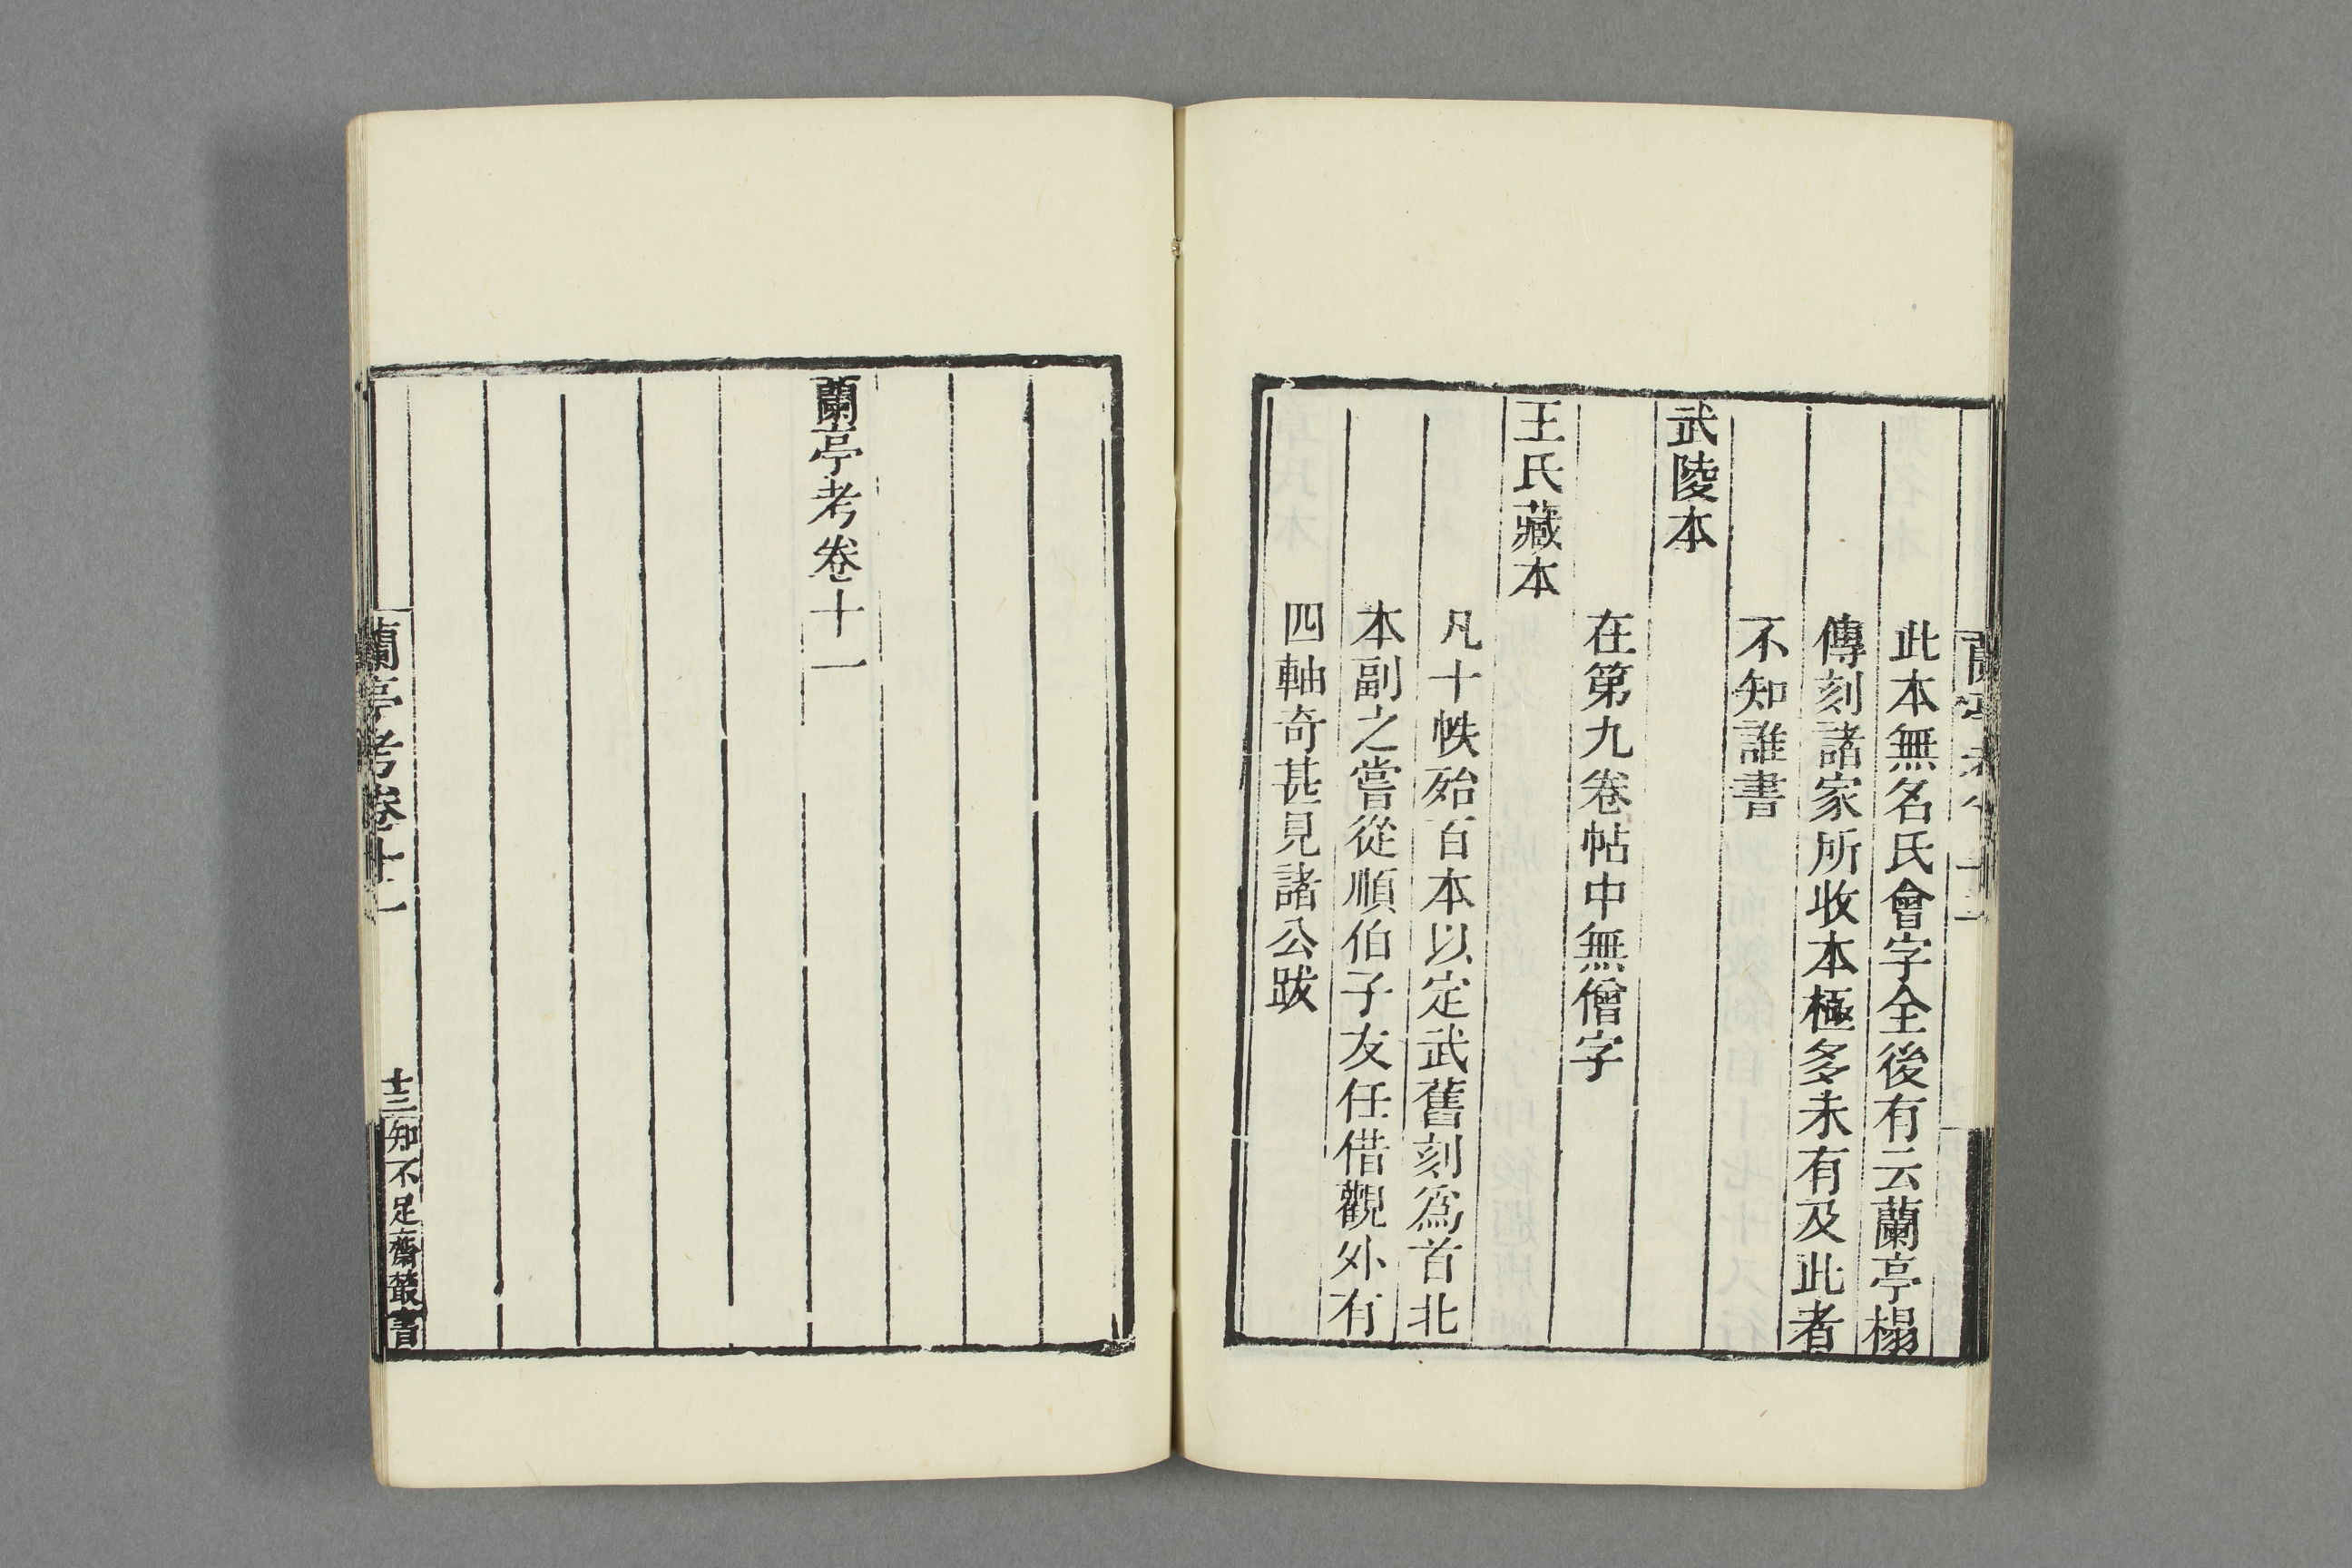 此本無名氏會字全後有云蘭亭榻
傳刻諸家所收本極多未有及此者
不知誰書
武陵本
在第九卷帖中無僧字
王氏藏本
凡十帙殆百本以定武舊刻爲首北
本副之嘗從順伯子友任借觀外有
四軸奇甚見諸公跋
蘭亭考卷十一
蘭亭考卷十一
十三
知不足齋叢書